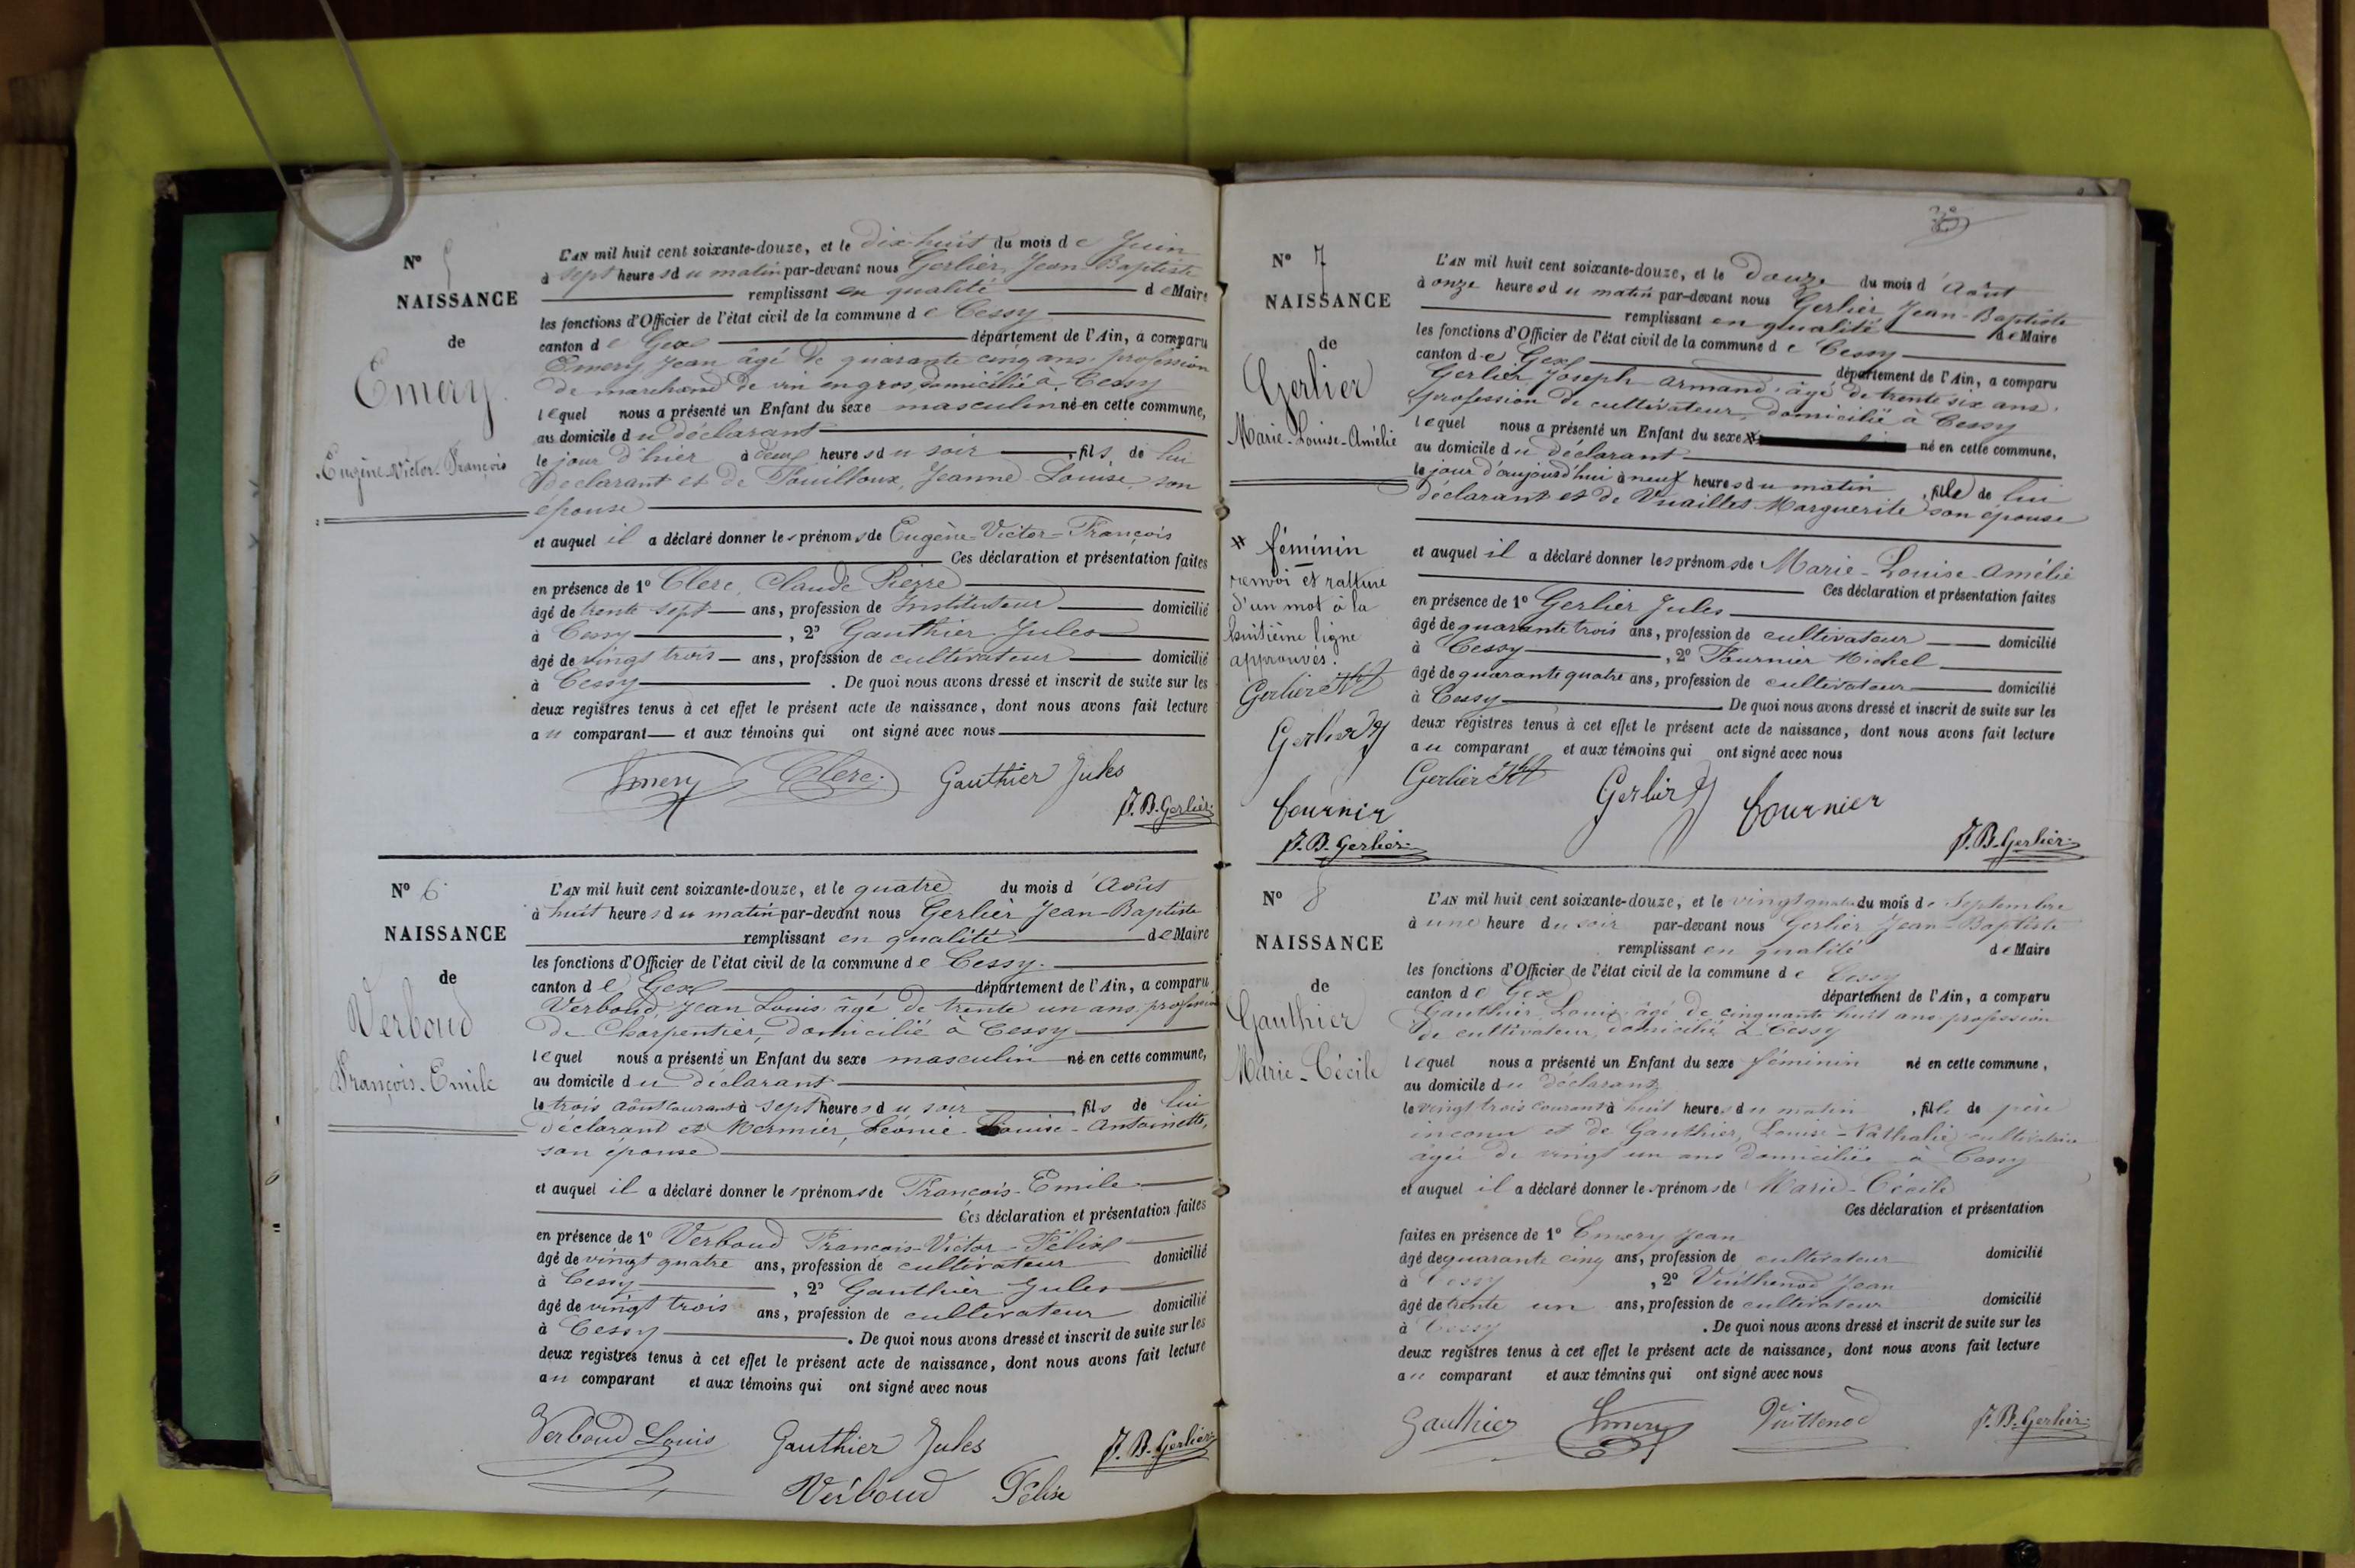 N° 5
NAISSANCE
de
Emery
Eugène-Victor-François
L'AN mil huit cent soixante-douze, et le dix-huit du mois de Juin
à sept heures du matin par-devant nous Gerlier, Jean-Baptiste
remplissant en qualité de Maire
les fonctions d'Officier de l'état civil de la commune de Cessy
canton de Gex département de l'Ain, a comparu
Emery Jean âgé de quarante cinq ans, profession
de marchand de vin en gros, domicilié à Cessy
lequel nous a présenté un Enfant du sexe masculin né en cette commune,
au domicile du déclarant
le jour d'hier à deux heures du soir, fils de lui
déclarant et de Pouilloux, Jeanne Louise, son
épouse
et auquel il a déclaré donner les prénoms de Eugène-Victor-François
Ces déclaration et présentation faites
en présence de 1° Clerc, Claude Pierre
âgé de trente sept ans, profession de Instituteur domicilié
à Cessy, 2° Gauthier Jules
âgé de vingt trois ans, profession de cultivateur domicilié
à Cessy. De quoi nous avons dressé et inscrit de suite sur les
deux registres tenus à cet effet le présent acte de naissance, dont nous avons fait lecture
au comparant et aux témoins qui ont signé avec nous
Emery Clerc Gauthier Jules
J.B. Gerlier
N° 6
NAISSANCE
de
Verboud
François-Emile
L'AN mil huit cent soixante-douze, et le quatre du mois d'Août
à huit heures du matin par-devant nous Gerlier Jean-Baptiste
remplissant en qualité de Maire
les fonctions d'Officier de l'état civil de la commune de Cessy.
canton de Gex département de l'Ain, a comparu
Verboud, Jean Louis âgé de trente un ans, profession
de Charpentier, domicilié à Cessy
lequel nous a présenté un Enfant du sexe masculin né en cette commune,
au domicile du déclarant
le trois août courant à sept heures du soir, fils de lui
déclarant et Mermier, Léonie-Louise-Antoinette,
son épouse
et auquel il a déclaré donner les prénoms de François-Emile
Ces déclaration et présentation faites
en présence de 1° Verboud François-Victor-Félix
âgé de vingt quatre ans, profession de cultivateur domicilié
à Cessy, 2° Gauthier Jules
âgé de vingt trois ans, profession de cultivateur domicilié
à Cessy. De quoi nous avons dressé et inscrit de suite sur les
deux registres tenus à cet effet le présent acte de naissance, dont nous avons fait lecture
au comparant et aux témoins qui ont signé avec nous
Verboud Louis Gauthier Jules J.B. Gerlier
Verboud Félix
N° 7
NAISSANCE
de
Gerlier
Marie-Louise-Amélie
# féminin
renvoi et rature
d'un mot à la
huitième ligne
approuvés.
Gerlier
Gerlier J
fournier
J.B. Gerlier
L'AN mil huit cent soixante-douze, et le douze du mois d'Août
à onze heures du matin par-devant nous Gerlier Jean-Baptiste
remplissant en qualité de Maire
les fonctions d'Officier de l'état civil de la commune de Cessy
canton de Gex département de l'Ain, a comparu
Gerlier Joseph-Armand, âgé de trente six ans,
profession de cultivateur, domicilié à Cessy
lequel nous a présenté un Enfant du sexe # né en cette commune,
au domicile du déclarant
le jour d'aujourd'hui à neuf heures du matin, fille de lui
déclarant et de Vuaillet Marguerite son épouse
et auquel il a déclaré donner les prénoms de Marie-Louise-Amélie
Ces déclaration et présentation faites
en présence de 1° Gerlier Jules
âgé de quarante trois ans, profession de cultivateur domicilié
à Cessy, 2° Fournier Michel
âgé de quarante quatre ans, profession de cultivateur domicilié
à Cessy De quoi nous avons dressé et inscrit de suite sur les
deux registres tenus à cet effet le présent acte de naissance, dont nous avons fait lecture
au comparant et aux témoins qui ont signé avec nous
Gerlier Gerlier J fournier
J.B. Gerlier
N° 8
NAISSANCE
de
Gauthier
Marie-Cécile
L'AN mil huit cent soixante-douze, et le vingt quatre du mois de Septembre
à une heure du soir par-devant nous Gerlier Jean-Baptiste
remplissant en qualité de Maire
les fonctions d'Officier de l'état civil de la commune de Cessy
canton de Gex département de l'Ain, a comparu
Gauthier, Louis âgé de cinquante huit ans profession
de cultivateur, domicilié à Cessy
lequel nous a présenté un Enfant du sexe féminin né en cette commune,
au domicile du déclarant
le vingt trois courant à huit heures du matin, fille de père
inconu et de Gauthier, Louise-Nathalie cultivatrice
agée de vingt un ans domiciliée à Cessy
et auquel il a déclaré donner les prénoms de Marie-Cécile
Ces déclaration et présentation
faites en présence de 1° Emery Jean
âgé de quarante cinq ans, profession de cultivateur domicilié
à Cessy, 2° Vuithenod Jean
âgé de trente un ans, profession de cultivateur domicilié
à Cessy. De quoi nous avons dressé et inscrit de suite sur les
deux registres tenus à cet effet le présent acte de naissance, dont nous avons fait lecture
au comparant et aux témoins qui ont signé avec nous
Gauthier Emery Vuittenod J.B. Gerlier